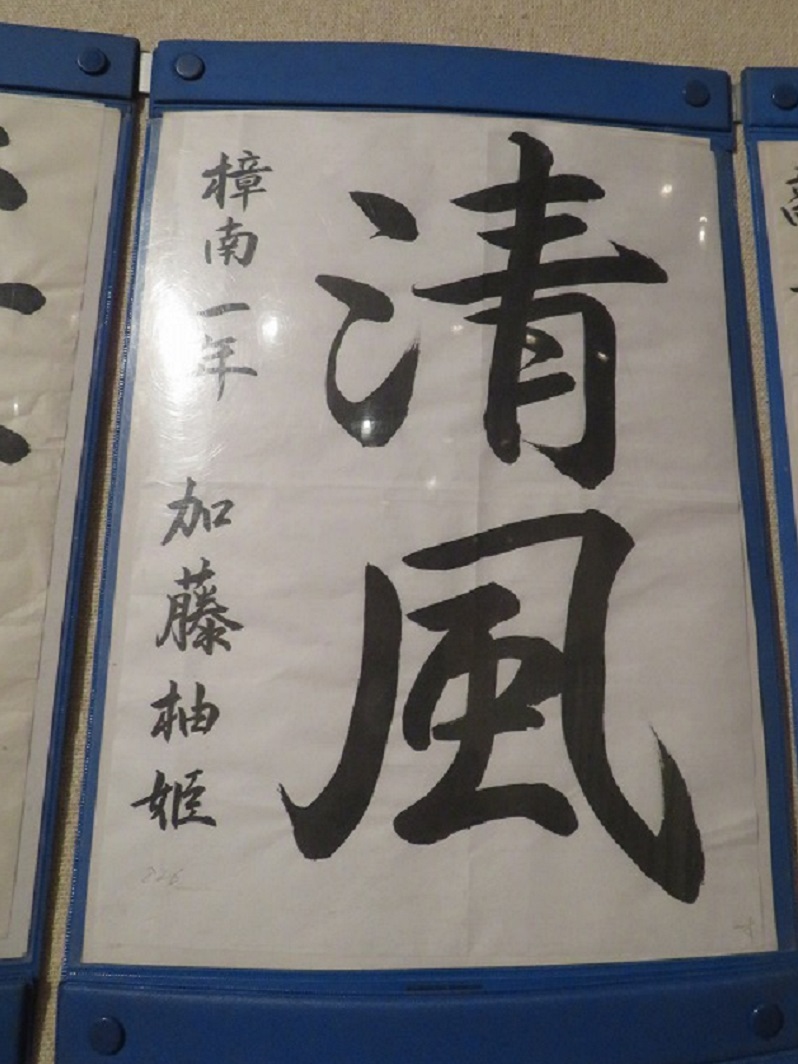 清風
樟南一年 加藤柚姫